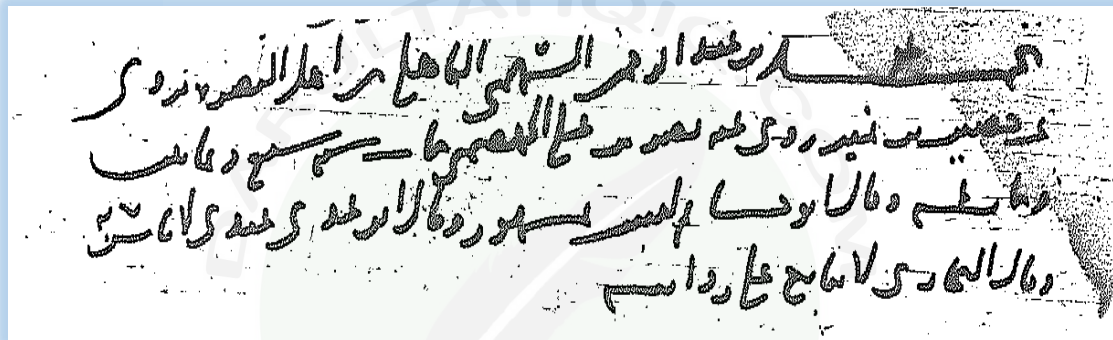 محمد بن عبد الرحمن السهمي الباهلي من أهل البصرة يروي
عن حصين بن نمير روى عنه نصر بن علي الجهضمي مات سنة سبع وثمانين
ومائة وقال أبو حاتم ليس بمشهور وقال ابن عدي عندي لا بأس به
وقال البخاري لا يتابع على روايته